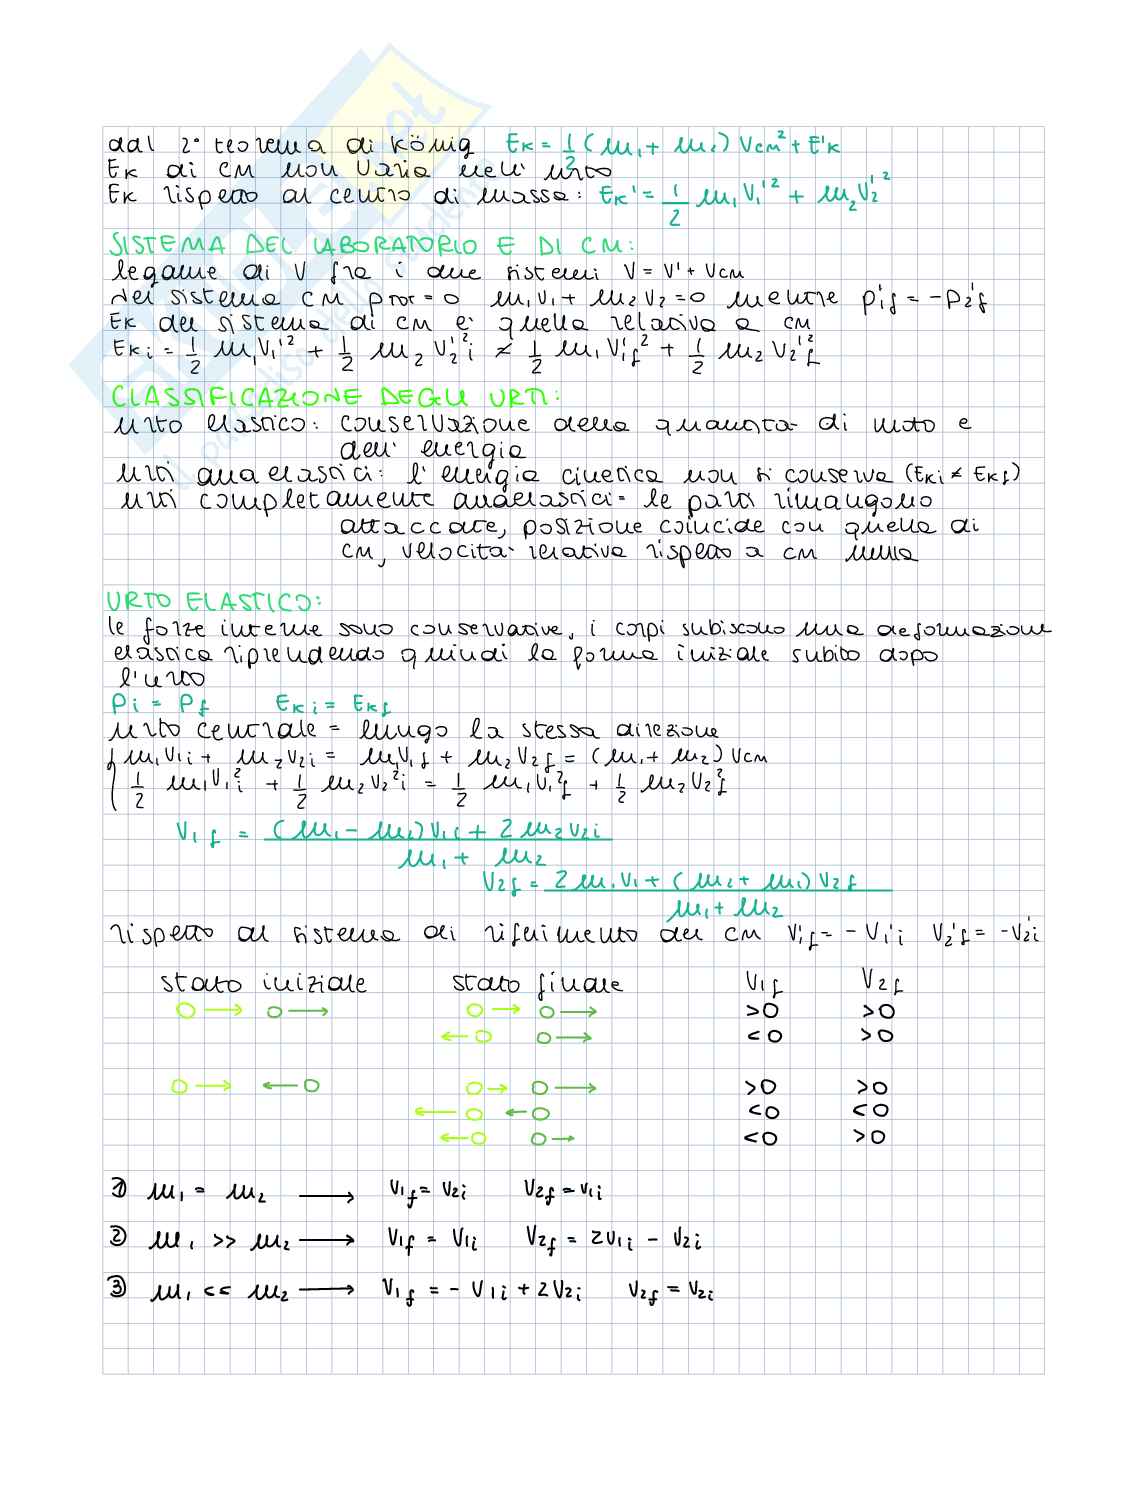 dal 2° teorema di König Eₖ = 1/2 (m₁ + m₂) Vcm² + E'ₖ
Eₖ di CM non varia nell' urto
Eₖ rispetto al centro di massa: Eₖ' = 1/2 m₁V₁'² + m₂V₂'²
SISTEMA DEL LABORATORIO E DI CM:
legame di V fra i due sistemi V = V' + Vcm
nel sistema CM ptot = 0 m₁V₁ + m₂V₂ = 0 mentre p'₁f = -p'₂f
Eₖ del sistema di CM è quella relativa a CM
Eₖi = 1/2 m₁V₁'² + 1/2 m₂ V₂'²i ≠ 1/2 m₁V₁'f² + 1/2 m₂ V₂'²f
CLASSIFICAZIONE DEGLI URTI:
urto elastico: conservazione della quantità di moto e
dell' energia
urti anaelastici: l' energia cinetica non si conserva (Eₖi ≠ Eₖf)
urti completamente anaelastici = le parti rimangono
attaccate, posizione coincide con quella di
CM, velocità relativa rispetto a CM nulla
URTO ELASTICO:
le forze interne sono conservative, i corpi subiscono una deformazione
elastica riprendendo quindi la forma iniziale subito dopo
l'urto
Pi = Pf Eₖi = Eₖf
urto centrale = lungo la stessa direzione
{ m₁V₁i + m₂V₂i = m₁V₁f + m₂V₂f = (m₁ + m₂) Vcm
1/2 m₁V₁²i + 1/2 m₂V₂²i = 1/2 m₁V₁²f + 1/2 m₂V₂²f
V₁f = (m₁ - m₂)V₁i + 2m₂V₂i / m₁ + m₂
V₂f = 2m₁V₁ + (m₂ + m₁)V₂f / m₁ + m₂
rispetto al sistema di riferimento del CM V₁'f = -V₁'i V₂'f = -V₂'i
stato iniziale stato finale V₁f V₂f
>0 >0
<0 >0
>0 >0
<0 <0
<0 >0
① m₁ = m₂ ⟶ V₁f = V₂i V₂f = V₁i
② m₁ >> m₂ ⟶ V₁f = V₁i V₂f = 2V₁i - V₂i
③ m₁ << m₂ ⟶ V₁f = - V₁i + 2V₂i V₂f = V₂i